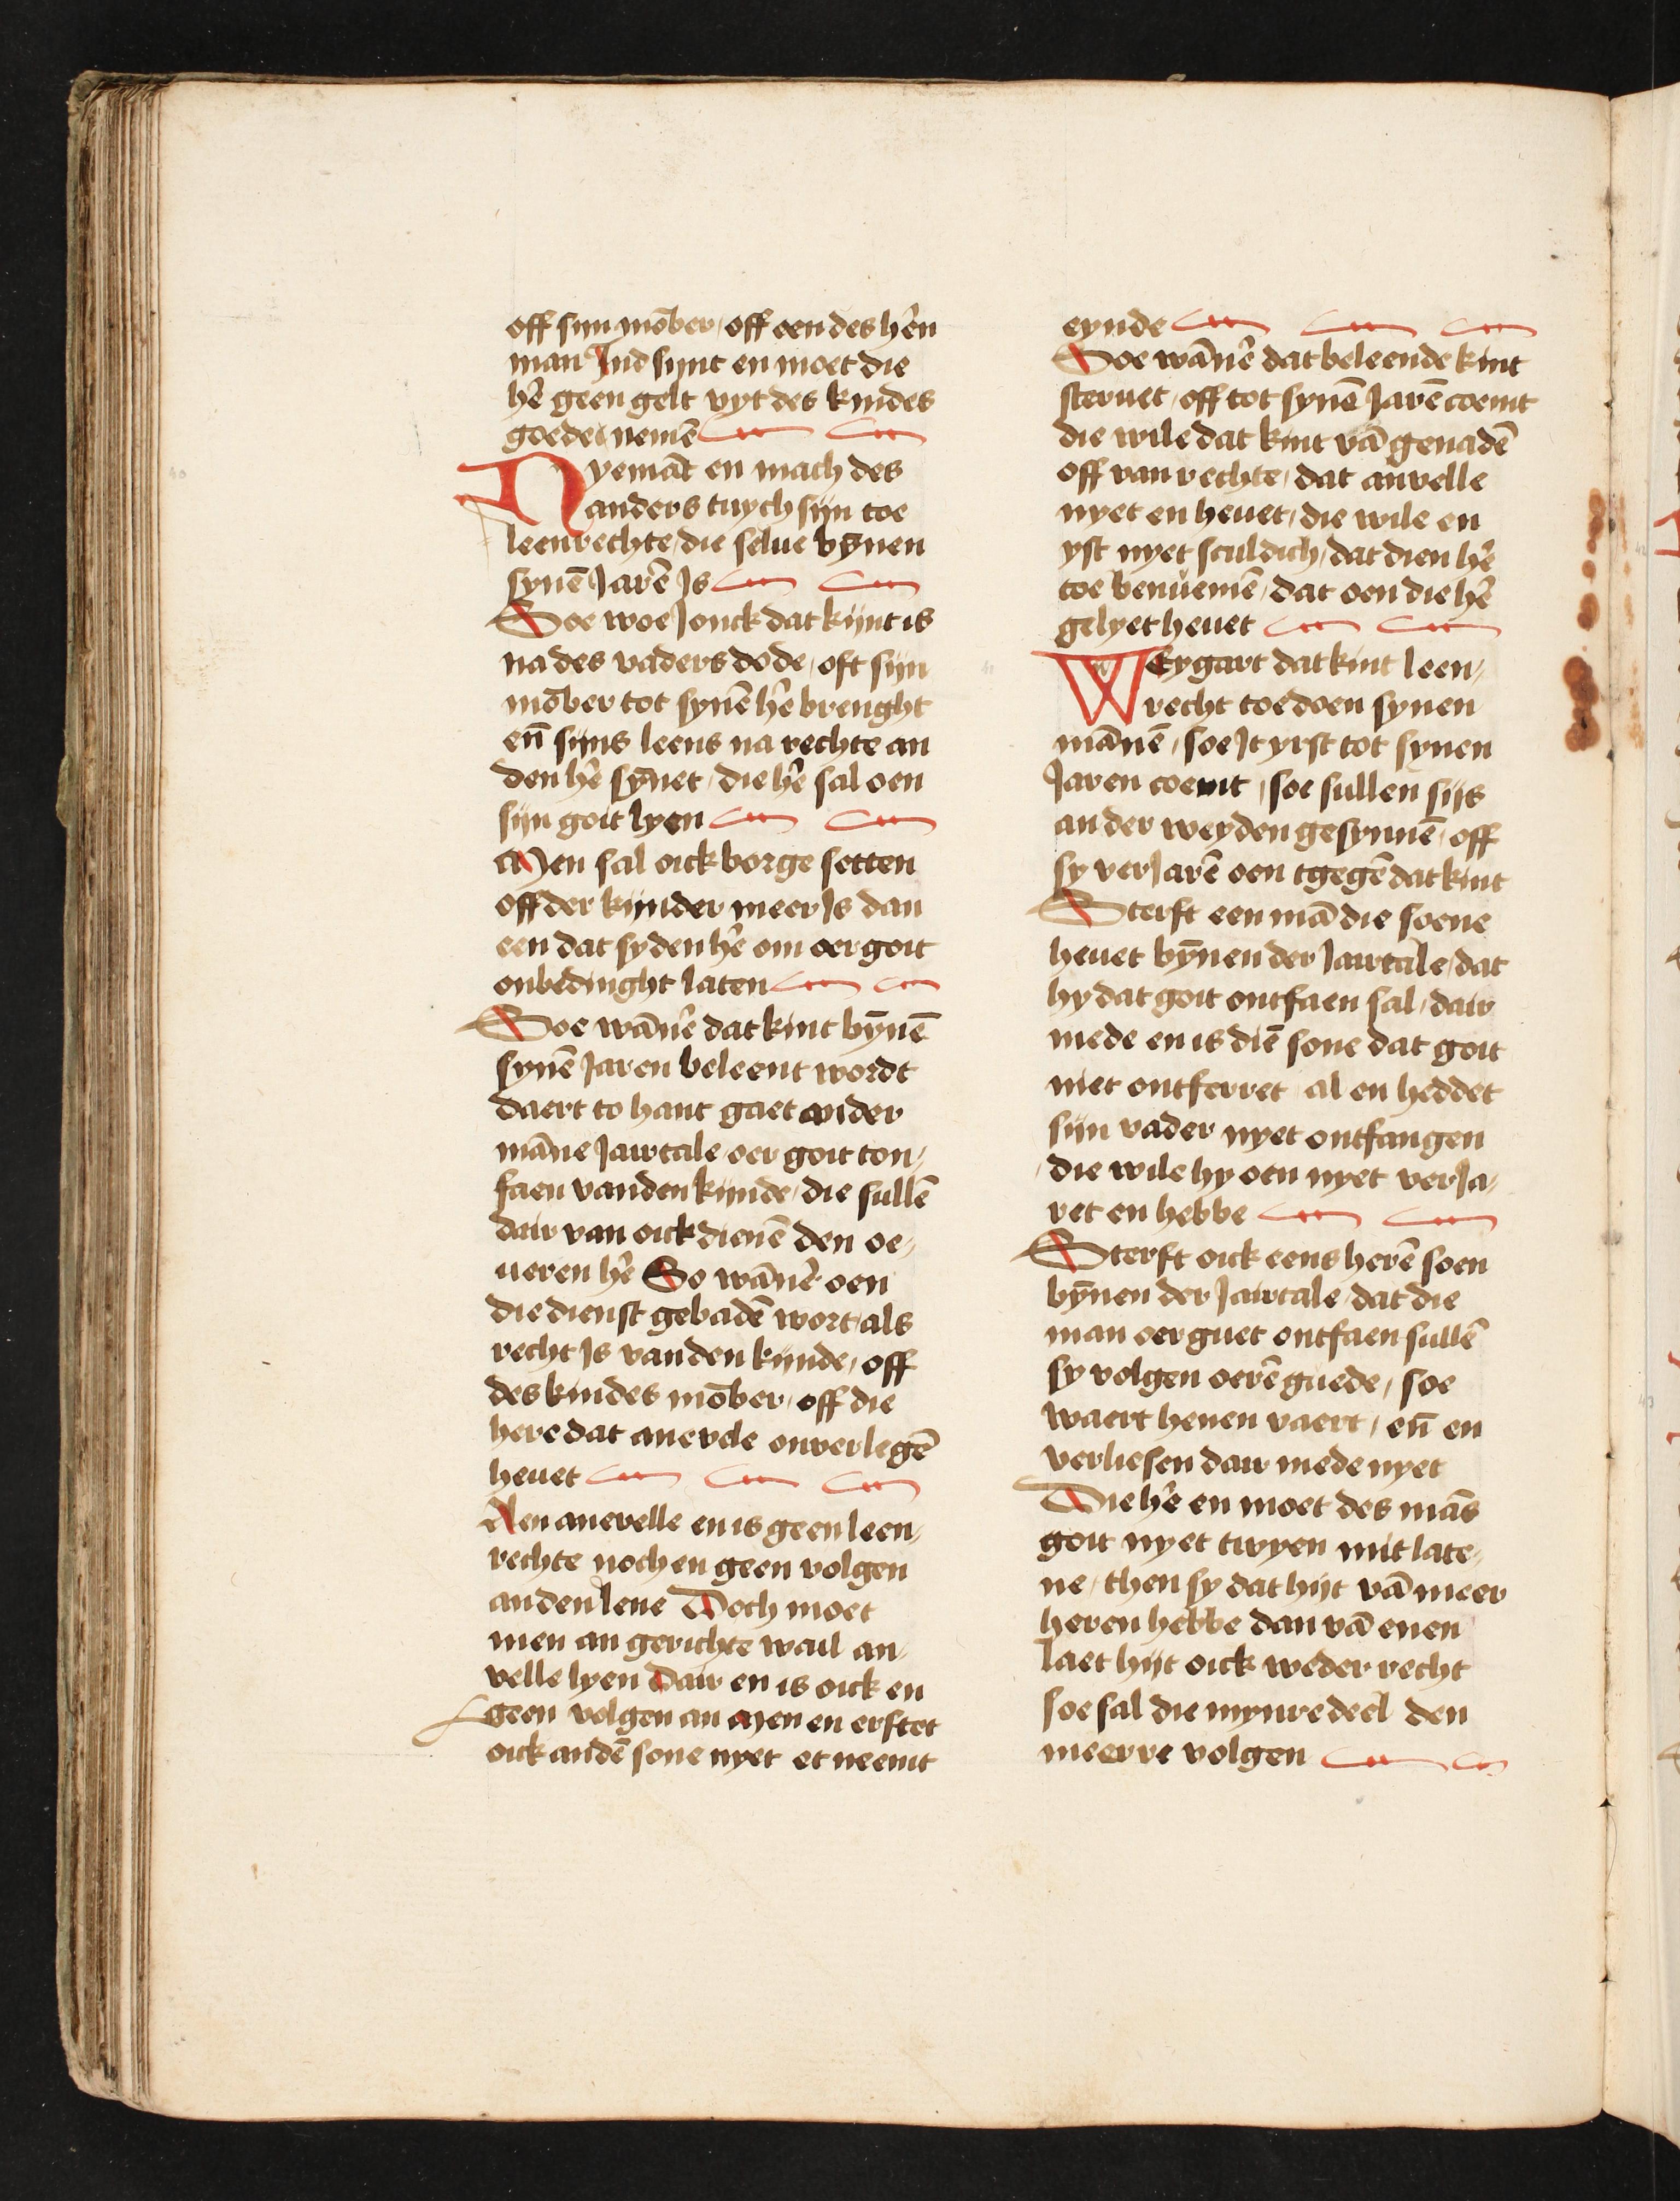 off sijn mōber / off oen des hẽn
man Ind sijnt en moet die
hẽ geen gelt vyt des kindes
goede nemē
Nyemāt en mach des
anders tuych sijn toe
leenrechte / die selue bȳnen
synē Jarē Is
Soe woe Jonck dat kijnt is
na des vaders dode / oft sijn
mōber tot synē hẽ brenght
eñ sijns leens na rechte an
den hẽ sȳnet / die hẽ sal oen
sijn goit lyen
Men sal oick borge setten
off der kijnder meer Is dan
een dat sy den hẽ om oer goit
onbedinght laten
Soe wānẽ dat kint bȳnē
synē Jaren beleent wordt
daert to hant gaet wider
māne Jairtale oer goit ton /
faen vanden kijnde / die sullē
dair van oick dienē den oe /
ueren hẽ So wānẽ oen
die dienst gebadē wort / als
recht Is van den kijnde / off
des kindes mōber / off die
here dat anevelle onverlegē
heuet
Aen anevelle en is geen leen /
rechte noch en geen volgen
anden lene Doch moet
men an gerichte wail an /
velle lyen Dair en is oick en
geen volgen an Men en erftet
oick andē sone nyet et neemt
eynde
Soe wānẽ dat beleende kint
steruet / off tot synē Jarē coemt
die wile dat kint vā genadē
off van rechte / dat anvelle
nyet en heuet / die wile en
yst nyet sculdich / dat dien hẽ
toe benuemē / dat oen die hẽ
gelyet heuet
WEygart dat kint leen /
recht toe doen synen
mānē / soe It yrst tot synen
Jaren coemt / soe sullen sijs
ander weyden gesynnē / off
sy verJarē oen tgegē dat kint
Sterft een mā die soene
heuet bȳnen der Jairtale / dat
hy dat goit ontfaen sal / dair
mede en is diē sone dat goit
niet ontferret al en heddet
sijn vader nyet ontfangen
die wile hy oen nyet verJa /
ret en hebbe
Sterft oick eens herē soen
bȳnen der Jairtale / dat die
man oer guet ontfaen sullē
sy volgen oerē guede / soe
waert henen vaert / eñ en
verliesen dair mede nyet
Die hẽ en moet des māš
goit nyet twyen mit late /
ne / then sy dat hijt vā meer
heren hebbe dan vā enen
laet hijt oick weder recht
soe sal die mynre deel den
meerre volgen